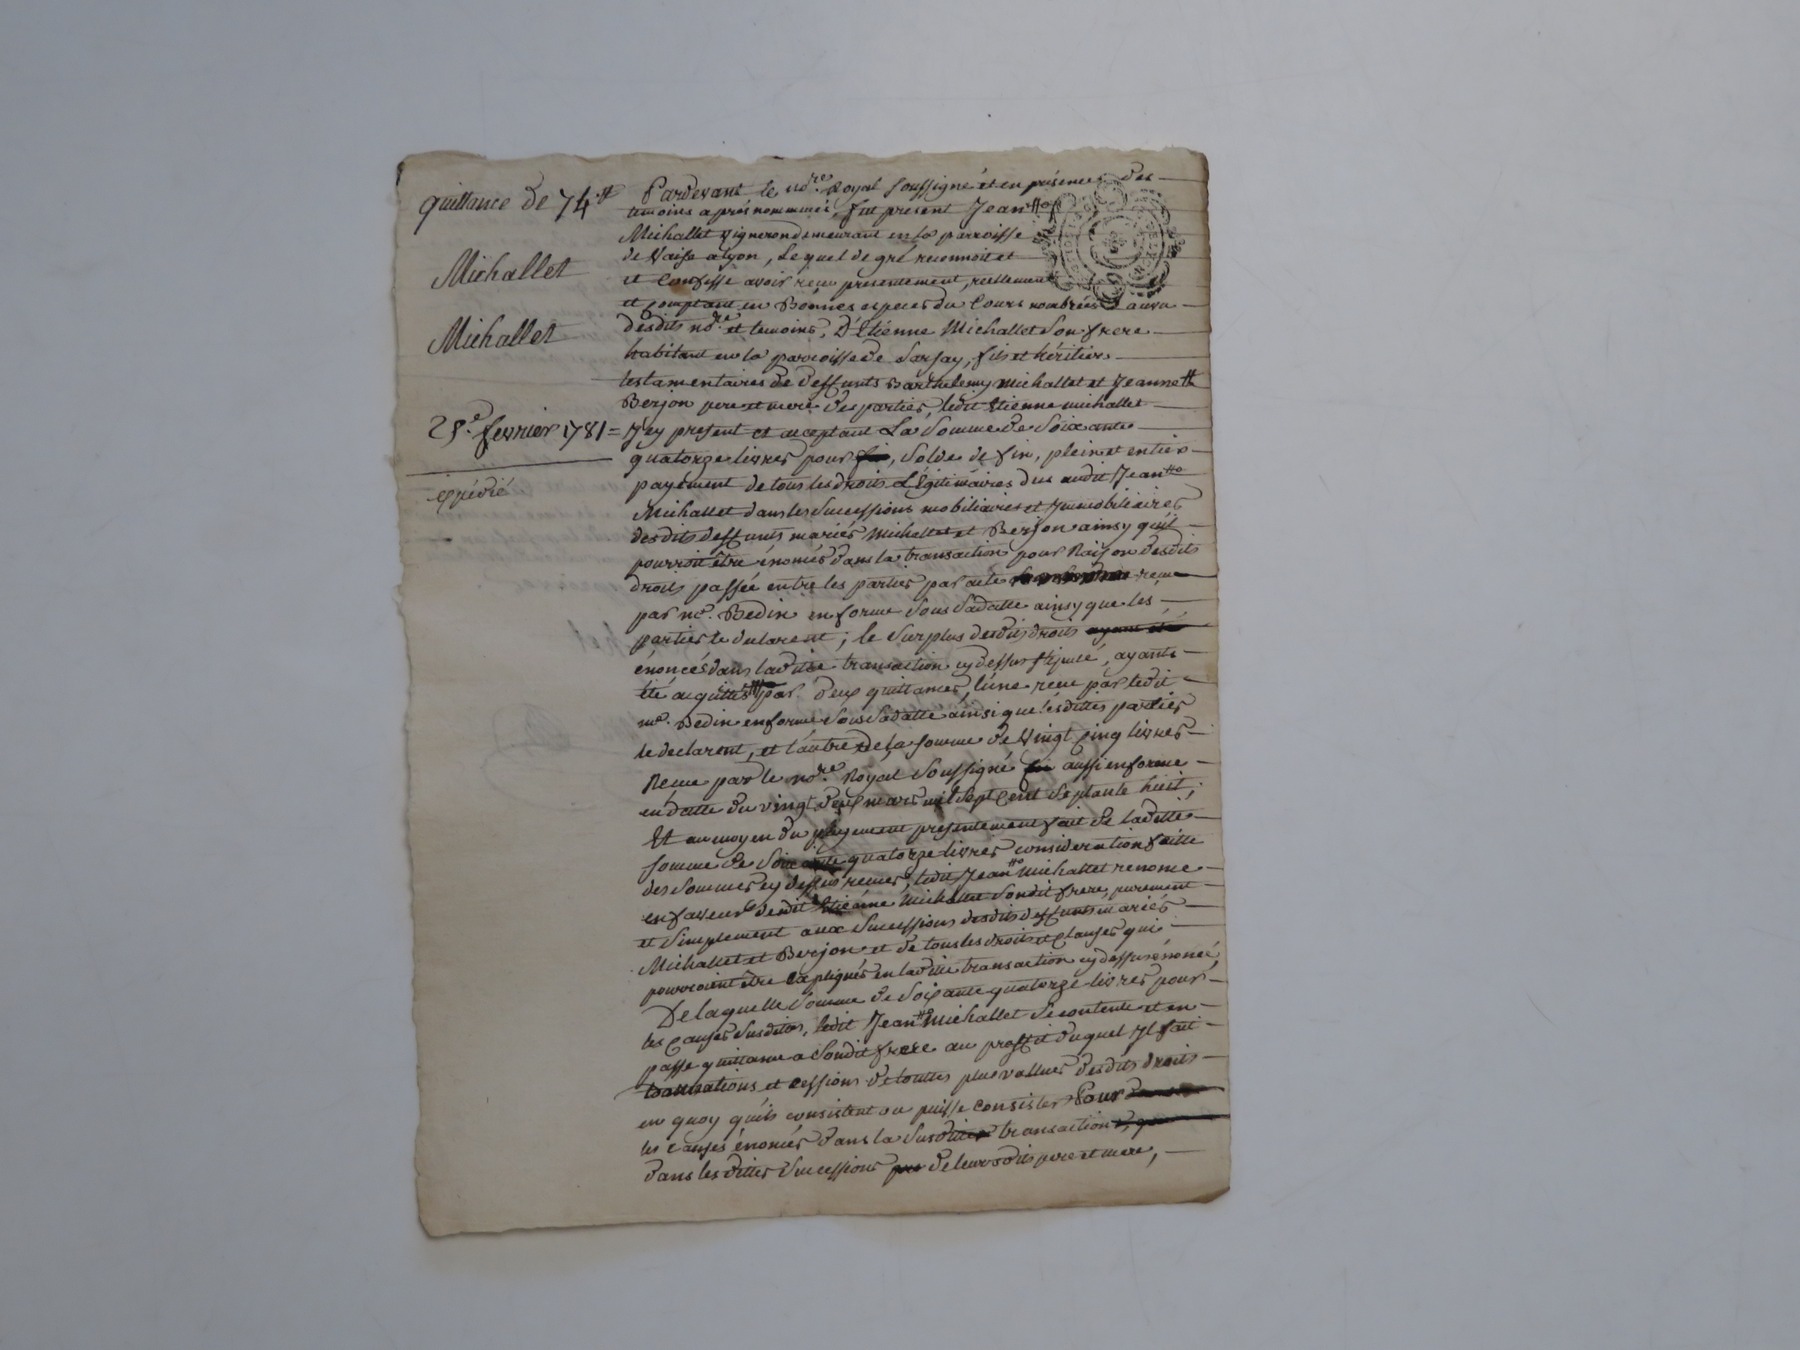 quittance de 74.
Michallet
Michallet
25.e fevrier 1781 =
expédié
Pardevant le nore. Royal soussigné et en présence des
temoins aprés nommmés, fut present Jean
Michallet vigneron demeurant en la parroisse
de Vaise a Lyon, Lequel de gré reconnoit et
et Confesse avoir reçu presentement, reellement
et Comptant en Bonnes especes du Cours nombrées a la vu
desdits nore. et temoins, D'Etienne Michallet son frere
habitant en la parroisse de Sarsay, fils et héritier
testamentaires de deffunts Barthelemy Michallet et Jeanne
Berjon pere et mere des parties, ledit Etienne michallet
Icy present et acceptant La Somme de Soixante
quatorze livres pour fin, solde de fin, plein et entier
payement de tous les droits Légitimaires dus audit Jean
Michallet dans les Successions mobiliaires et Immobiliaires
desdits deffunts mariés Michallet et Berjon ainsy qu'il
pourroit être énoncés dans la transaction pour Raison desdits
droits passée entre les parties par acte reçue
par me. Bedin en forme sous sa datte ainsy que les
parties le declarent; le Surplus desdits droits ayant été
énoncés dans laditte transaction cy dessus stipulé, ayants
été acquittés par deux quittances, l'une reçue par ledit
me. Bedin en forme sous sa datte ainsi que lesdittes parties
le declarent, et l'autre de la somme de Vingt Cinq livres
Reçue par le nore. Royal soussigné aussi en forme
en datte du vingt deux mars mil Sept Cent Septante huit;
Et au moyen du payement presentement fait de laditte
somme de Soixante quatorze livres consideration faitte
des sommes cy dessus reçues, ledit Jean Michallet renonce
en faveur dudit Etienne Michallet sondit frere, purement
et Simplement aux Successions desdits deffunts mariés
Michallet et Berjon et de tous les droits et Clauses qui
pourroient être Expliqués en laditte transaction cy dessus énoncée,
De laquelle Somme de Soixante quatorze livres pour
les Causes susdites, ledit Jean Michallet se contente et en
passe quittance a Sondit frere au proffit duquel Il fait
donnations et Cessions de touttes plus vallues desdits droits
en quoy qu'ils consistent ou puisse consister Pour
les Causes énoncés dans la Susditte transaction
dans les dittes Successions par de leursdits pere et mere,